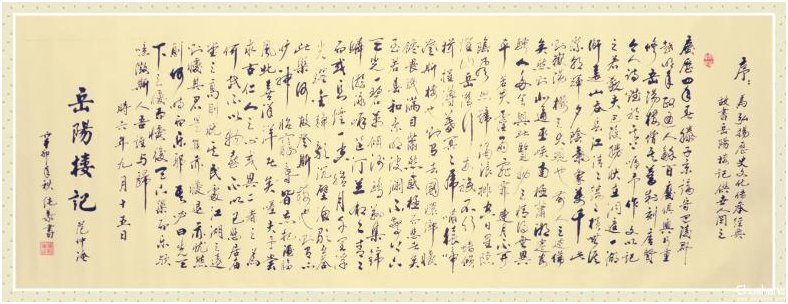 序：為弘揚歷史文化傳承經典
故書岳陽樓記供世閱之
慶歷四年春滕子京謫守巴陵郡
越明年政通人和百廢俱興乃重
修岳陽樓增其舊制刻唐賢
今人詩賦於其上屬予作文以記
之予觀夫巴陵勝狀在洞庭一湖
銜遠山吞長江浩浩湯湯橫無
際涯朝暉夕陰氣象萬千此
則岳陽樓之大觀也前人之述備
矣然則北通巫峽南極瀟湘遷客
騷人多會於此覽物之情得無異
乎若夫霪雨霏霏連月不開
陰風怒號濁浪排空日星隱
曜山岳潛形商旅不行檣傾
楫摧薄暮冥冥虎嘯猿啼
登斯樓也則有去國懷鄉憂
讒畏譏滿目蕭然感極而悲者矣
至若春和景明波瀾不驚上下
天光一碧萬頃沙鷗翔集錦
鱗游泳岸芷汀蘭郁郁青青
而或長煙一空皓月千里浮
光躍金靜影沉璧漁歌互答
此樂何極登斯樓也則有心
曠神怡寵辱皆忘把酒臨
風其喜洋洋者矣嗟夫予嘗
求古仁人之心或異二者之為
何哉不以物喜不以己悲居廟
堂之高則憂其民處江湖之遠
則憂其君是進亦憂退亦憂然
則何時而樂耶其必曰先天
下之憂而憂後天下之樂而樂乎
噫微斯人吾誰與歸
時六年九月十五日
岳陽樓記 范仲淹
辛卯年秋 書